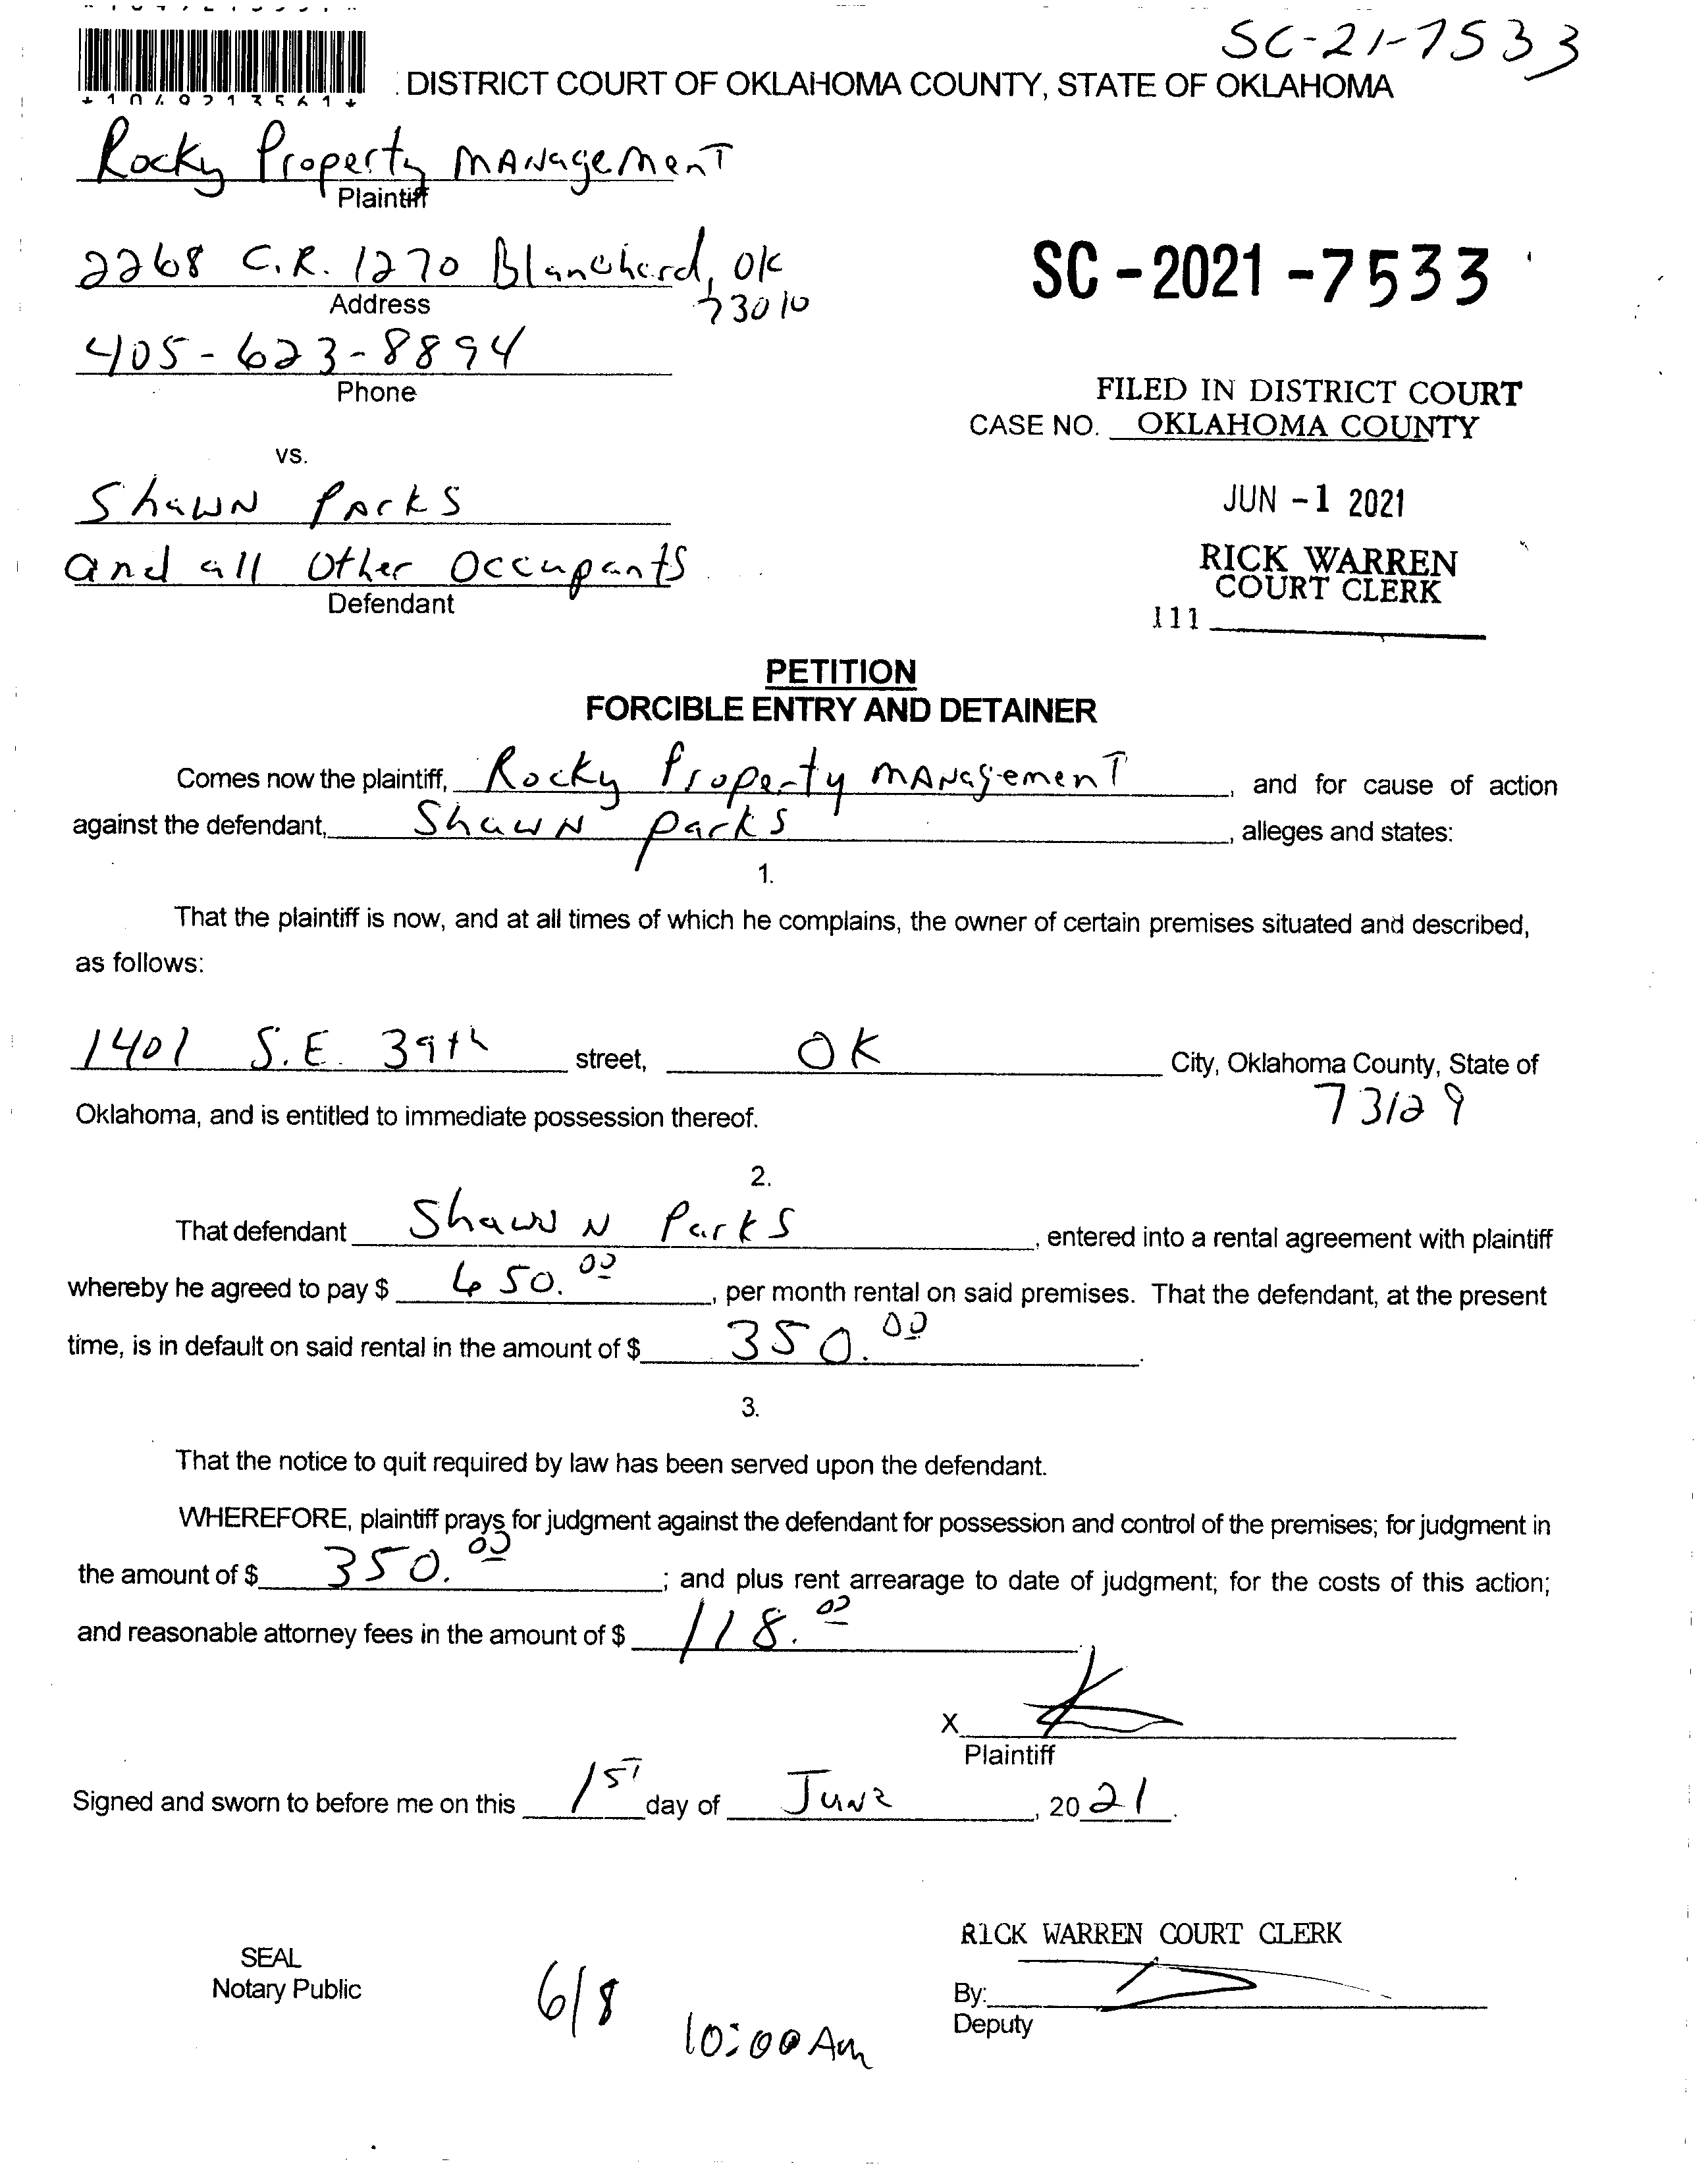 SC-21-7533
DISTRICT COURT OF OKLAHOMA COUNTY, STATE OF OKLAHOMA
Rocky Property Management
Plaintiff
2268 C.R. 1270 Blanchard, OK
73010
Address
SC-2021-7533
405-623-8894
Phone
FILED IN DISTRICT COURT
CASE NO. OKLAHOMA COUNTY
vs.
Shawn Parks
JUN -1 2021
and all Other Occupants
Defendant
RICK WARREN
COURT CLERK
111
PETITION
FORCIBLE ENTRY AND DETAINER
Comes now the plaintiff, Rocky Property Management, and for cause of action
against the defendant, Shawn Parks, alleges and states:
1.
That the plaintiff is now, and at all times of which he complains, the owner of certain premises situated and described,
as follows:
1401 S.E. 39th street, OK City, Oklahoma County, State of
Oklahoma, and is entitled to immediate possession thereof. 73129
2.
That defendant Shawn Parks, entered into a rental agreement with plaintiff
whereby he agreed to pay $ 650.00, per month rental on said premises. That the defendant, at the present
time, is in default on said rental in the amount of $ 350.00.
3.
That the notice to quit required by law has been served upon the defendant.
WHEREFORE, plaintiff prays for judgment against the defendant for possession and control of the premises; for judgment in
the amount of $ 350.00; and plus rent arrearage to date of judgment; for the costs of this action;
and reasonable attorney fees in the amount of $ 118.00.
X
Plaintiff
Signed and sworn to before me on this 1ST day of June, 2021.
RICK WARREN COURT CLERK
SEAL
Notary Public
By:
Deputy
6/8
10:00 Am